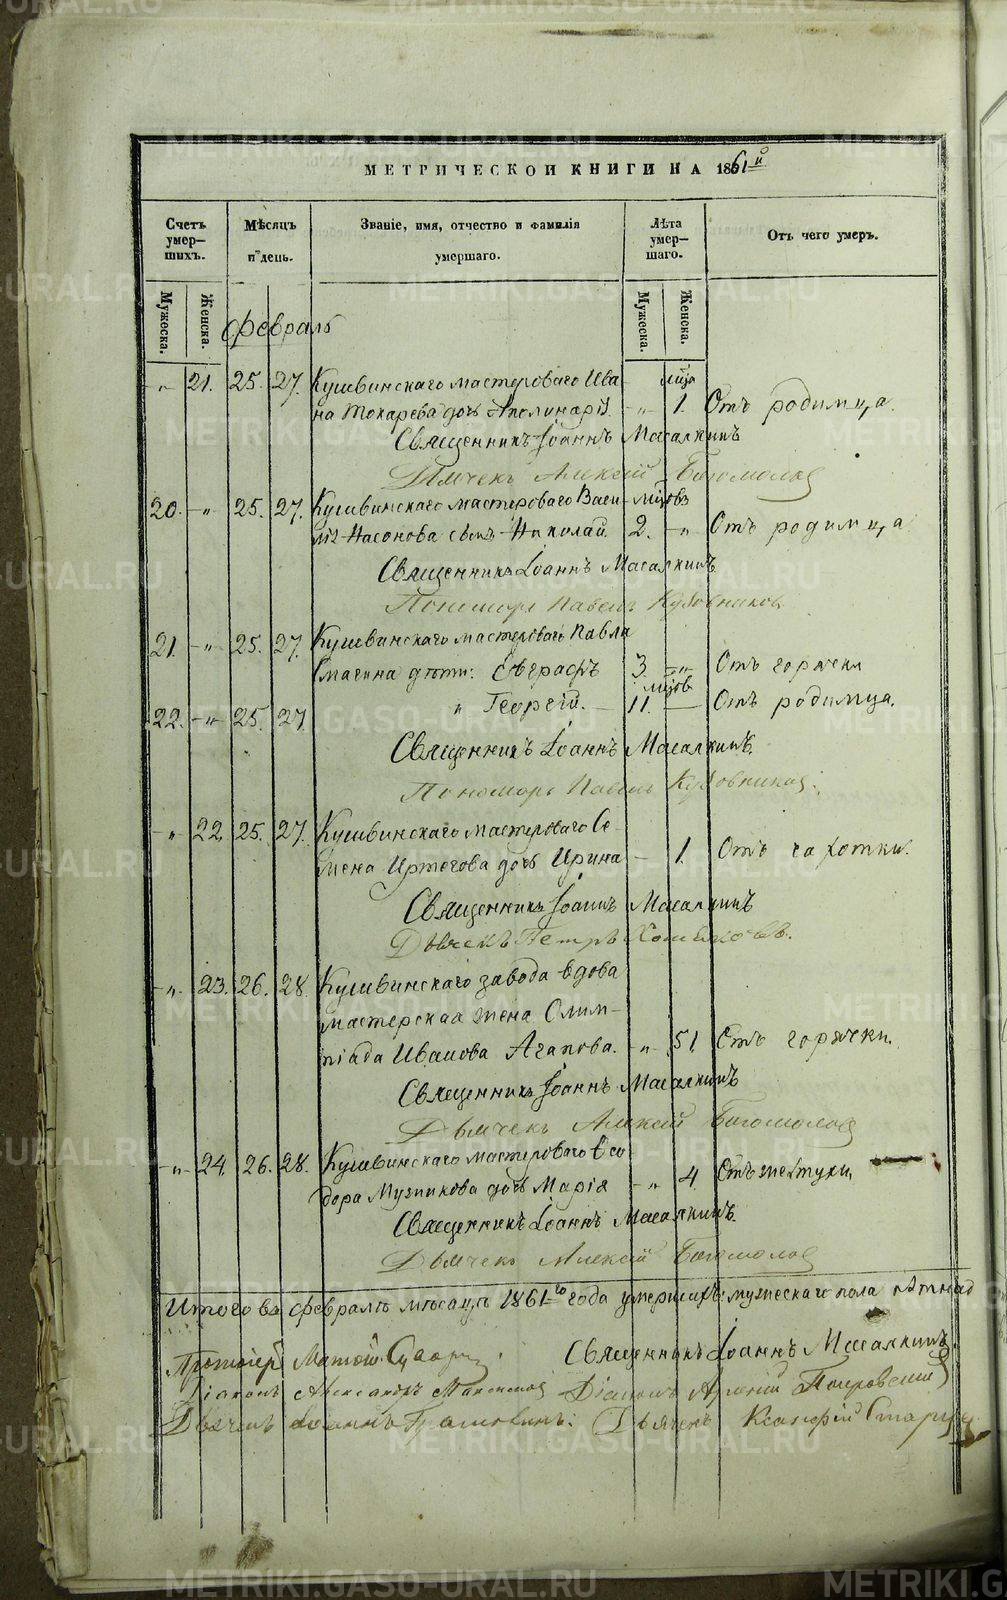 МЕТРИЧЕСКОЙ КНИГИ НА 1861й
Счетъ умер-шихъ.
Мѣсяцъ и день.
Званіе, имя, отчество и фамилія умершаго.
Лѣта умер-шаго.
Отъ чего умеръ.
Мужеска.
Женска.
Мужеска.
Женска.
Февраль
" 21. 25. 27. Кушвинскаго мастероваго Ива- мца
на Токарева дочь Аполинарія. - " 1. Отъ родимца.
Священникъ Іоаннъ Масалкинъ
Дьячекъ Алексій Богомолов
20. - " 25. 27. Кушвинскаго мастероваго Васи- мцовъ
лія Насонова сынъ Николай 2. - " Отъ родимца
Священникъ Іоаннъ Масалкинъ
Пономарь Павелъ Кубовников
21. - " 25. 27. Кушвинскаго мастероваго Павла
Смагина дѣти: Евграфъ 3. - " Отъ горячки
мцов
22. - " 25. 27. " Георгій. - 11. Отъ родимца.
Священникъ Іоаннъ Масалкинъ
Пономарь Павелъ Кубовников.
" 22. 25. 27. Кушвинскаго мастероваго Се-
мена Иртегова дочь Ирина - 1. Отъ чахотки.
Священникъ Іоаннъ Масалкинъ
Дьячекъ Петръ
- " 23. 26. 28. Кушвинскаго завода вдова
мастерская жена Олим-
піада Иванова Агапова. - " 51. Отъ горячки.
Священникъ Іоаннъ Масалкинъ
Дьячекъ Алексій Богомолов
- " 24. 26. 28. Кушвинскаго мастероваго Ѳео
дора Музникова дочь Марія - " 4. Отъ жептухи,
Священникъ Іоаннъ Масалкинъ.
Дьячекъ Алексій Богомолов
Итого въ февралѣ мѣсяцѣ 1861го года умершихъ: мужескаго пола
Протоіер Священникъ Іоаннъ Масалкинъ.
Діаконъ Александръ Діаконъ Покровскій
Дьячекъ Іоаннъ Дьячекъ
METRIKI.GASO-URAL.RU